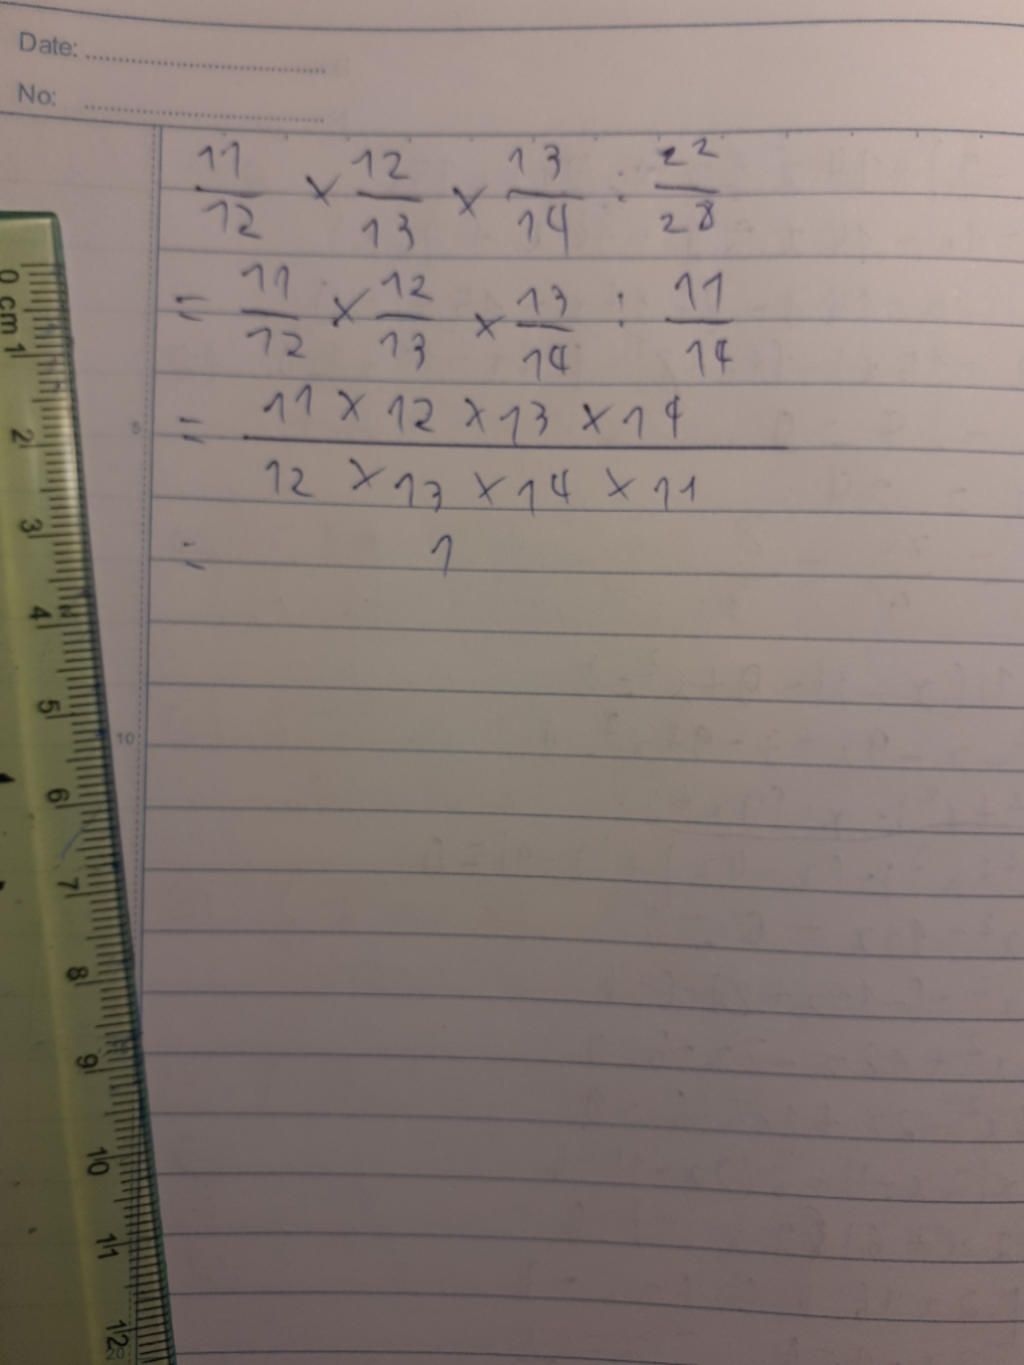 Date:
No:
11/12 × 12/13 × 13/14 : 22/28
= 11/12 × 12/13 × 13/14 : 11/14
= 11 × 12 × 13 × 14 / 12 × 13 × 14 × 11
= 1
5
10
20
0 cm 1 2 3 4 5 6 7 8 9 10 11 12